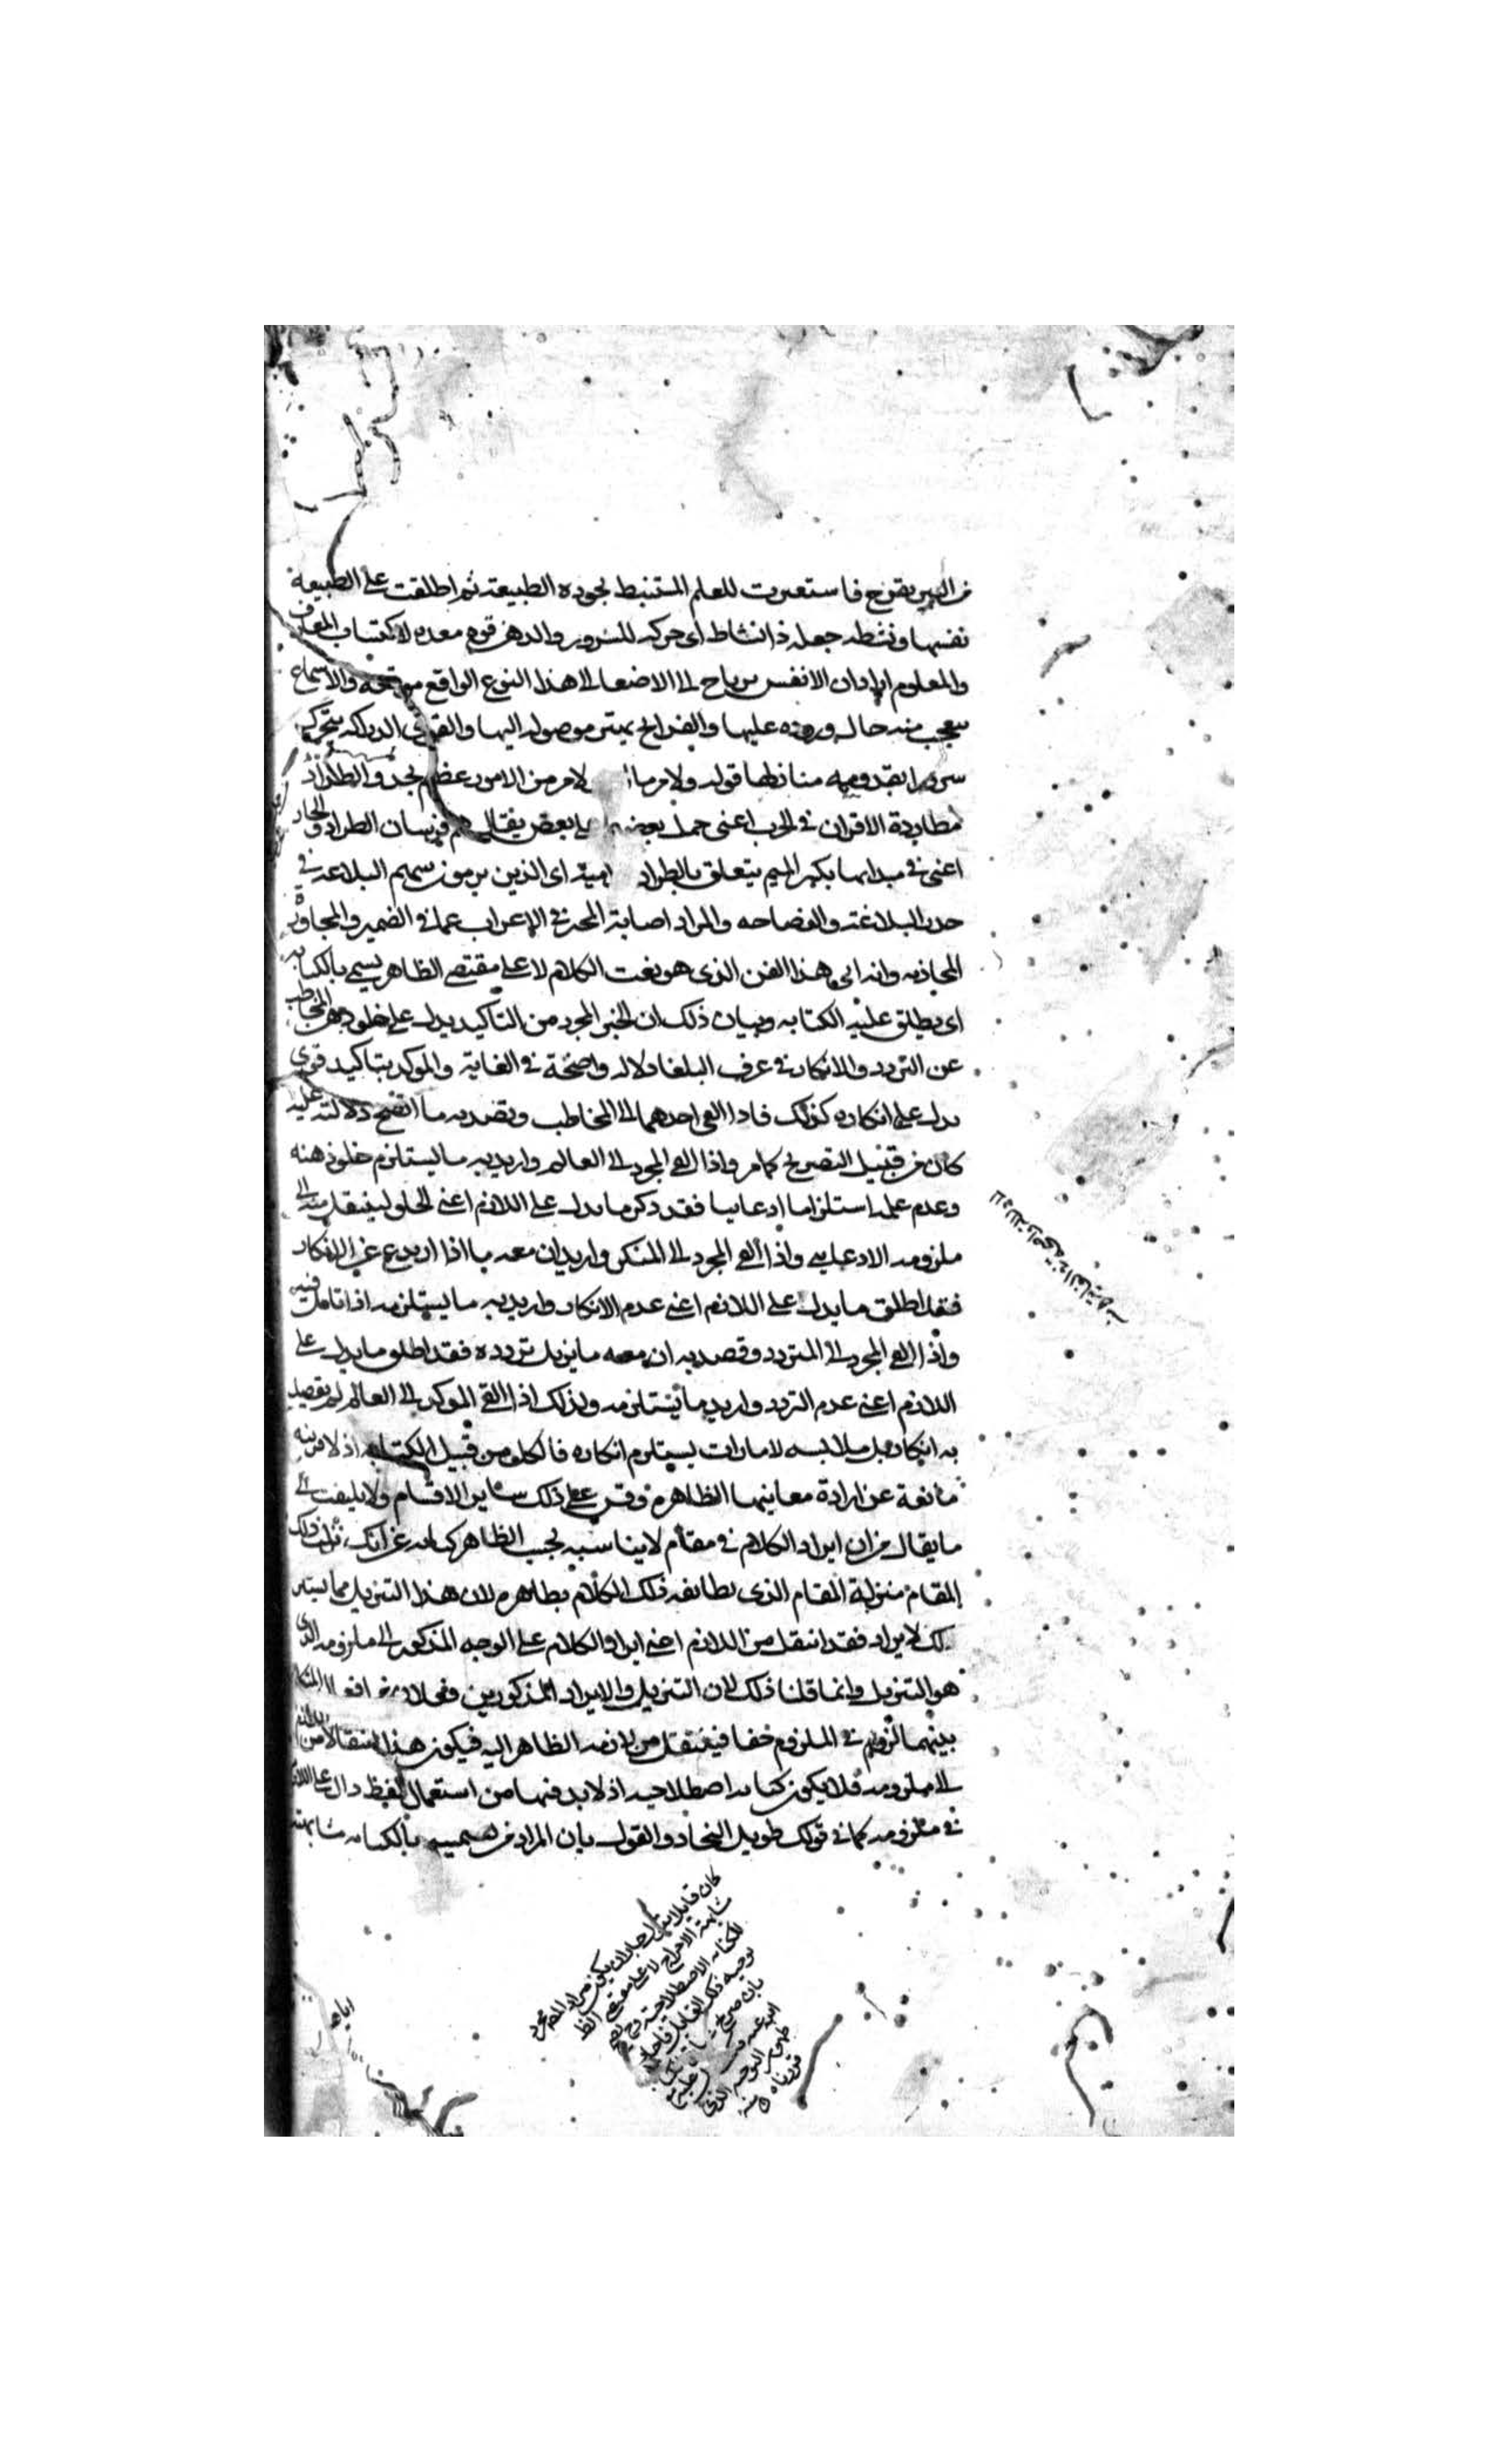 من البير بقزح فاستعيرت للعلم المستنبط بجودة الطبيعة ثم اطلقت على الطبيعة
نفسها ونشطه جعله ذا نشاط اى حركه للسرور والذهن قوه معده لاكتساب المعارف
والمعلوم ايراد ان الانفس يرتاح الى الاضغا الى هذا النوع الواقع موقعه والاسماع
يتعجب منه حال وروده عليها والقرايح يهتز موصوله اليها والقوى الدراكه يتحرك
سرورا بقدومه منازلها قوله ولامر ما لامر من الامور عظيم تجد والطراد
مطاردة الاقران في الحرب اعنى حمل بعضهم على بعض يقال هم فرسان الطراد و
اعنى في ميدانها بكسر الميم يتعلق بالطراد امية اى الذين يرمون سهم البلاغه في
حدق البلاغة والفصاحه والمراد اصابة المحز في الاعراب عما في الضمير والمجاوبة
المجاذبه وانه اى هذا الفن الذى هو نعت الكلام لا على مقتضى الظاهر يسمى بالكنايه
اى يطلق عليه الكنايه وبيان ذلك ان الخبر المجرد من التاكيد يدل على خلو ذهن المخاطب
عن التردد والانكار في عرف البلغا دلاله واضحة في الغاية والموكد بتاكيد قوى
يدل على انكاره كذلك فاذا القى احدهما الى المخاطب وقصد به ما اتضح دلالته عليه
كان من قبيل التصريح كما مر واذا القى المجرد الى العالم واريد به ما يستلزم خلو ذهنه
وعدم علمه استلزاما ادعاييا فقد ذكر ما يدل على اللازم اعنى الخلو لينتقل منه الى
ملزومه الادعايى واذا القى المجرد الى المنكر واريد ان معه ما اذا ارتدع عن الانكار
فقد اطلق ما يدل على اللازم اعنى عدم الانكار واريد به ما يستلزمه اذا تامل فيه
واذا القى المجرد الى المتردد وقصد به ان معه ما يزيل تردده فقد اطلق ما يدل على
اللازم اعنى عدم التردد واريد ما يستلزمه وكذلك اذا القى الموكد الى العالم لم يقصد
به انكاره بل ملابسه لامارات يستلزم انكاره فالكل من قبيل الكنايه اذ لا قرينه
مانعة عن ارادة معانيها الظاهرة وقس على ذلك ساير الاقسام ولا يلتفت الى
ما يقال من ان ايراد الكلام في مقام لا يناسبه بحسب الظاهر كنايه عن انك نزلت ذلك
المقام منزلة المقام الذى يطابقه ذلك الكلام بظاهره لان هذا التنزيل مما يستلزم
لك الايراد فقد انتقل من اللازم اعنى ايراد الكلام على الوجه المذكور الى ملزومه الذى
هو التنزيل وانما قلنا ذلك لان التنزيل والايراد المذكورين فعلان
بينهما لزوم في الملزوم خفا فينتقل من لازمه الظاهر اليه فيكون هذا انتقالا من اللازم
الى ملزومه فلا يكون كنايه اصطلاحيه اذ لا بد فيها من استعمال لفظ دال على اللازم
في ملزومه كما في قولك طويل النجاد والقول بان المراد من تسميته بالكنايه مشابهته
كان قايلا
مشابهة الاخراج لا على مقتضى الظ
للكنايه الاصطلاحية
توجيه ذلك القايل
بان صرح
التوجيه الذى
قررناه منه